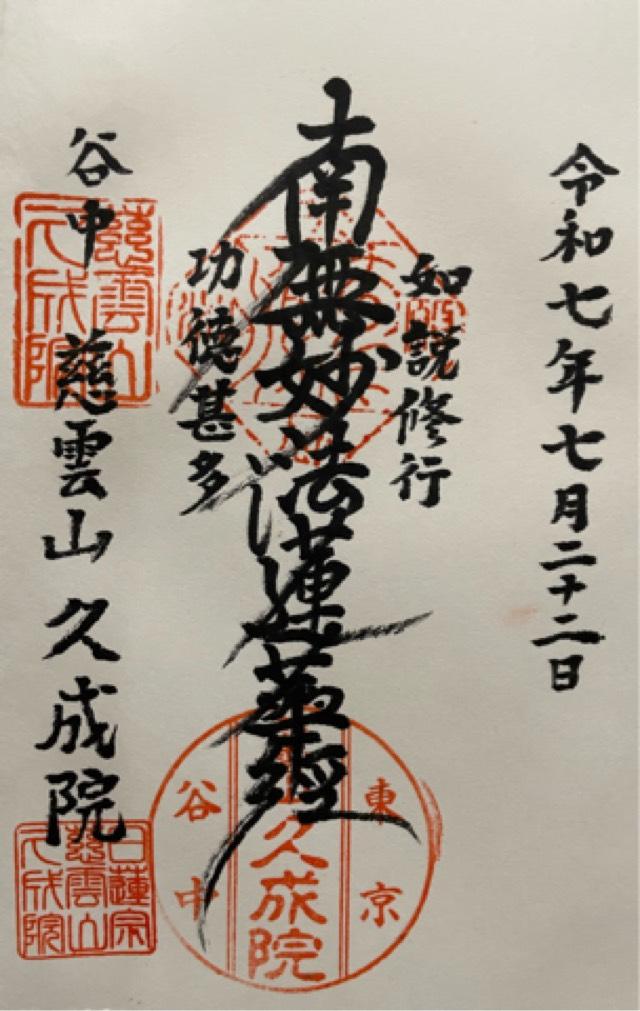 令和七年七月二十二日
如説修行
南無妙法蓮華経
功徳甚多
谷中 慈雲山 久成院
慈雲山
久成院
東京
久成院
谷中
日蓮宗
慈雲山
久成院